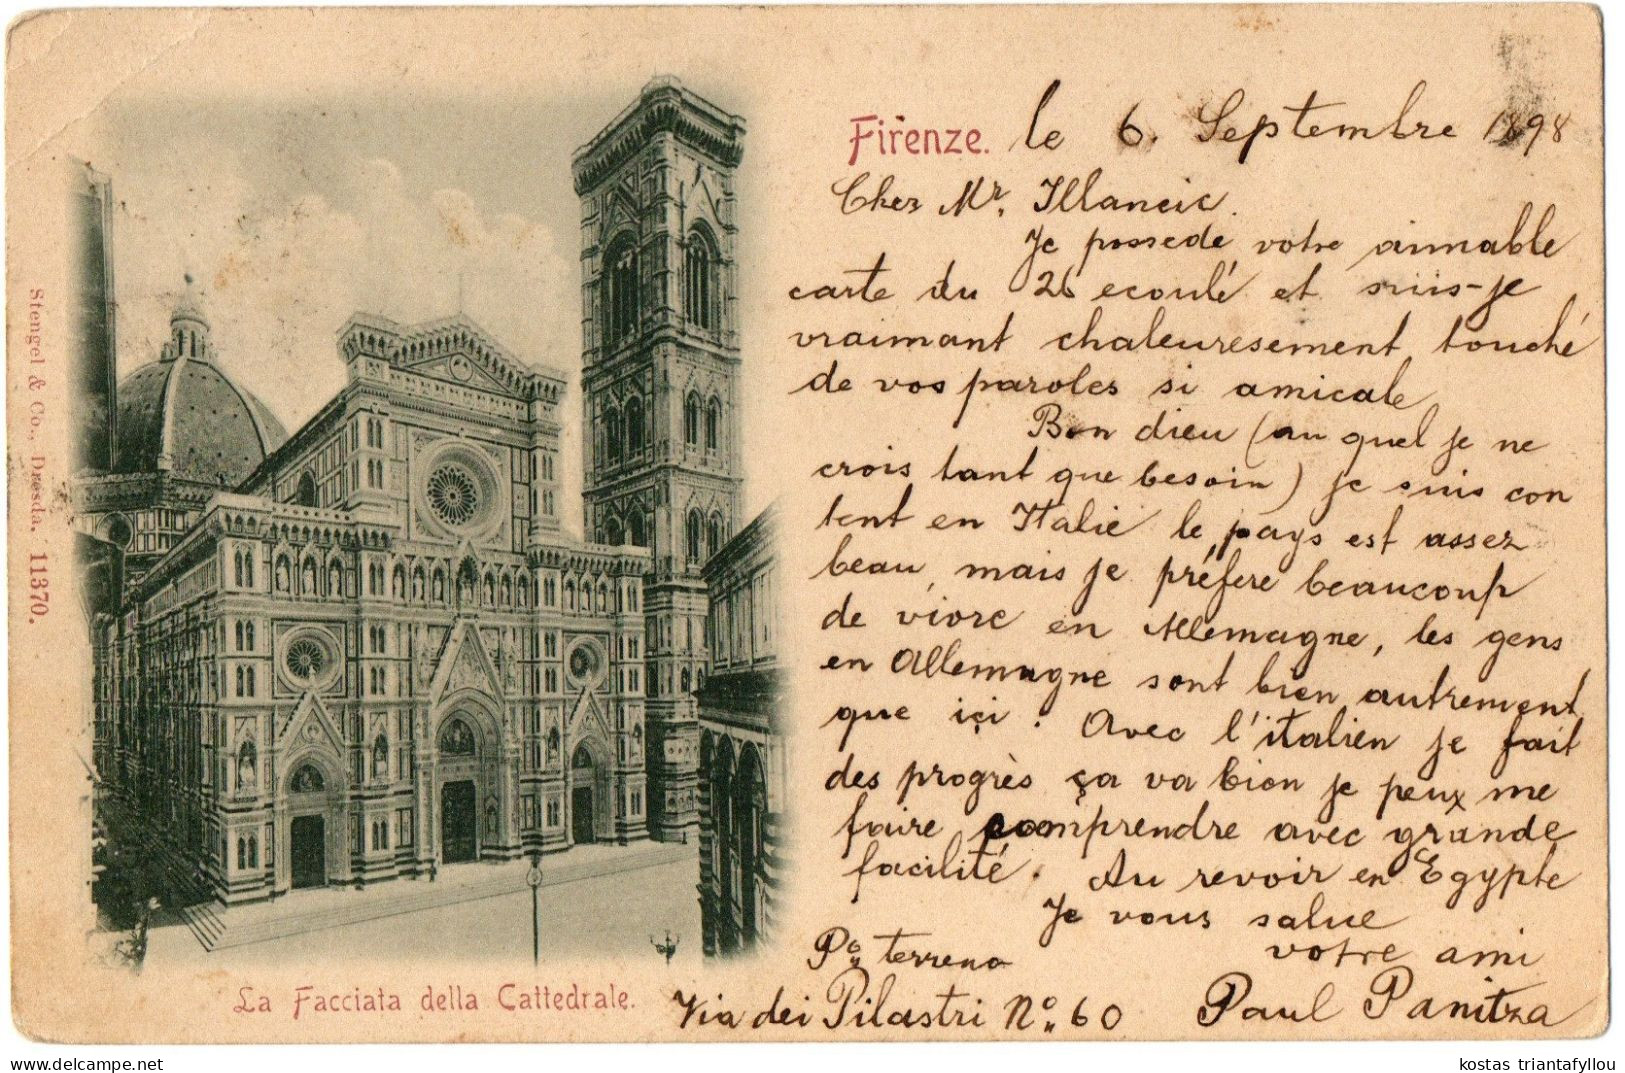 Firenze. le 6. Septembre 1898
Cher Mr. Illancic.
Je possede votre aimable
carte du 26 ecoulé et suis-je
vraimant chaleuresement touché
de vos paroles si amicale
Bon dieu (au quel je ne
crois tant que besoin) je suis con
tent en Italie le pays est assez
beau, mais je préfere beaucoup
de vivre en Allemagne, les gens
en Allemagne sont bien autrement
que içi: Avec l'italien je fait
des progrès ça va bien je peux me
faire comprendre avec grande
facilité. Au revoir en Egypte
Je vous salue
votre ami
Paul Panitza
Po terreno
Via dei Pilastri No 60
La Facciata della Cattedrale.
Stengel & Co., Dresda, 11370.
kostas triantafyllou